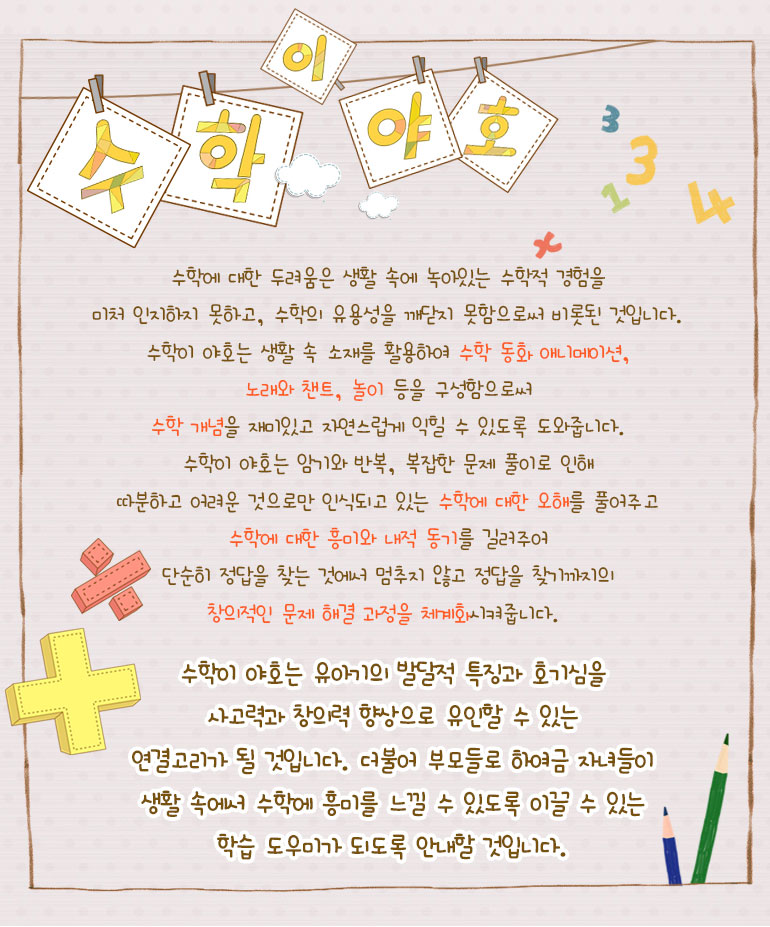 수학이 야호
3
3
1
4
x
수학에 대한 두려움은 생활 속에 녹아있는 수학적 경험을
미처 인지하지 못하고, 수학의 유용성을 깨닫지 못함으로써 비롯된 것입니다.
수학이 야호는 생활 속 소재를 활용하여 수학 동화 애니메이션,
노래와 챈트, 놀이 등을 구성함으로써
수학 개념을 재미있고 자연스럽게 익힐 수 있도록 도와줍니다.
수학이 야호는 암기와 반복, 복잡한 문제 풀이로 인해
따분하고 어려운 것으로만 인식되고 있는 수학에 대한 오해를 풀어주고
수학에 대한 흥미와 내적 동기를 길러주어
단순히 정답을 찾는 것에서 멈추지 않고 정답을 찾기까지의
창의적인 문제 해결 과정을 체계화시켜줍니다.
수학이 야호는 유아기의 발달적 특징과 호기심을
사고력과 창의력 향상으로 유인할 수 있는
연결고리가 될 것입니다. 더불어 부모들로 하여금 자녀들이
생활 속에서 수학에 흥미를 느낄 수 있도록 이끌 수 있는
학습 도우미가 되도록 안내할 것입니다.